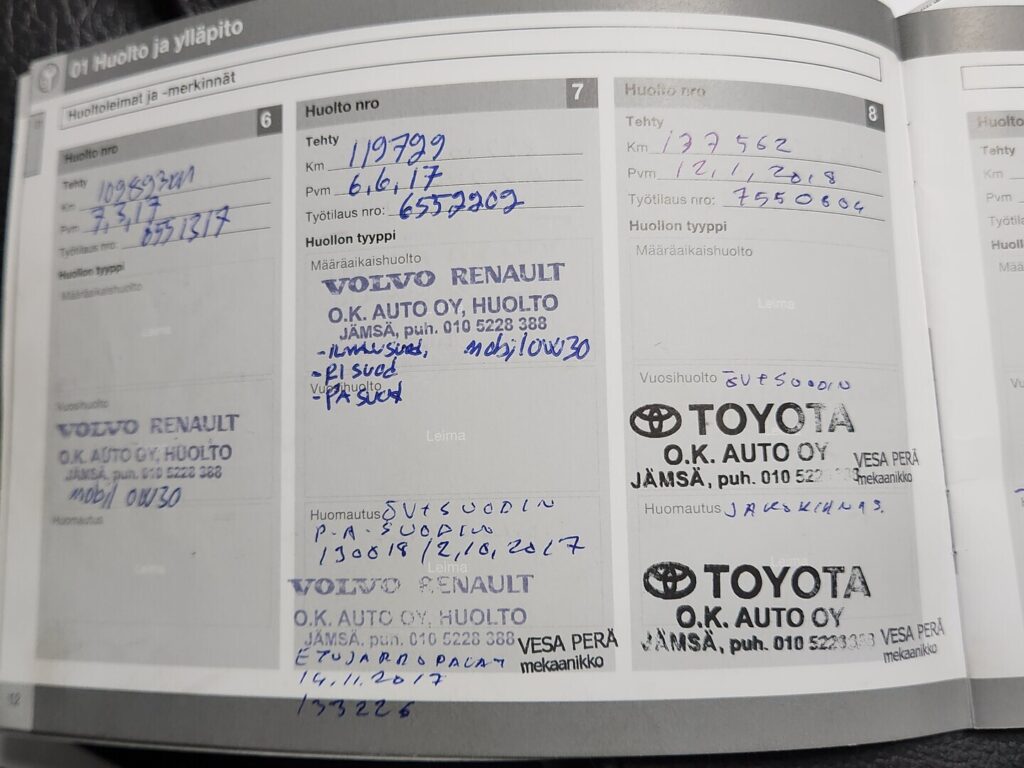 01 Huolto ja ylläpito
Huoltoleimat ja -merkinnät
Huolto nro 6
Tehty
Km
Pvm 7,3,17
Työtilaus nro: 6551317
Huollon tyyppi
Määräaikaishuolto
Leima
Vuosihuolto
VOLVO RENAULT
O.K. AUTO OY, HUOLTO
JÄMSÄ, puh. 010 5228 388
mobil 0W30
Huomautus
Leima
12
Huolto nro 7
Tehty
Km 119729
Pvm 6,6,17
Työtilaus nro: 6552202
Huollon tyyppi
Määräaikaishuolto
VOLVO RENAULT
O.K. AUTO OY, HUOLTO
JÄMSÄ, puh. 010 5228 388
-ILMASUOD, mobil 0W30
-RI SUOD
Vuosihuolto
-PA SUOD
Leima
Huomautus ÖV+SUODIN
P.A.SUODIN
130018 /2,10,2017
Leima
VOLVO RENAULT
O.K. AUTO OY, HUOLTO
JÄMSÄ, puh. 010 5228 388
VESA PERÄ
mekaanikko
ETUJARRUPALAT
14.11.2017
133226
Huolto nro 8
Tehty
Km 137562
Pvm 12,1,2018
Työtilaus nro: 7550604
Huollon tyyppi
Määräaikaishuolto
Leima
Vuosihuolto ÖV+SUODIN
TOYOTA
O.K. AUTO OY
JÄMSÄ, puh. 010 522
VESA PERÄ
mekaanikko
Huomautus JAKOHIHNAS.
TOYOTA
O.K. AUTO OY
JÄMSÄ, puh. 010 5228
VESA PERÄ
mekaanikko
Huolto
Tehty
Km
Pvm